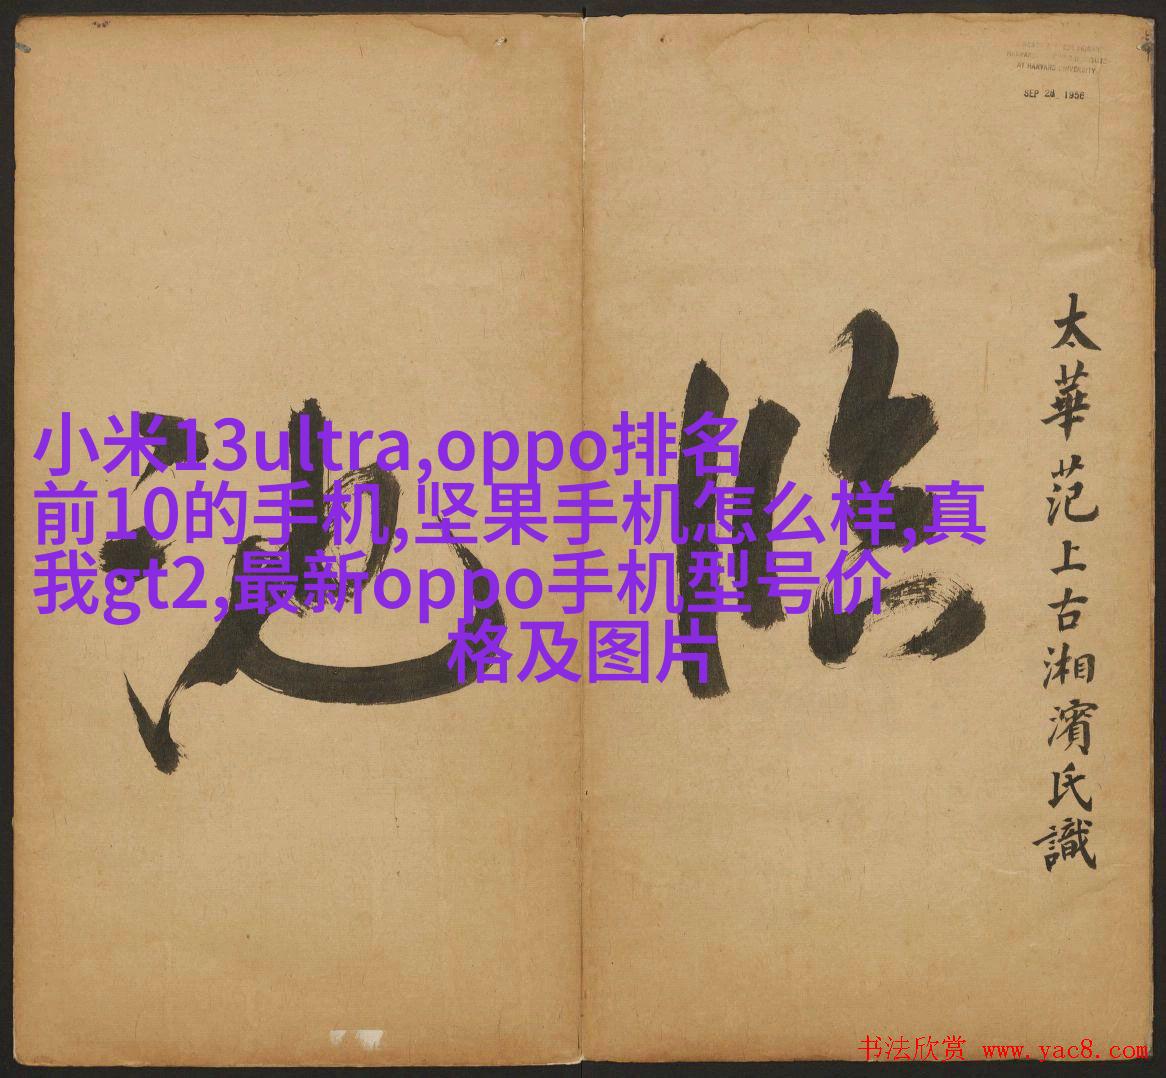 AT HARVARD UNIVERSITY
SEP 28 1956
臨池
太華范上古湘濱氏識
小米13ultra,oppo排名
前10的手机,坚果手机怎么样,真
我gt2,最新oppo手机型号价
格及图片
书法欣赏 www.yac8.com